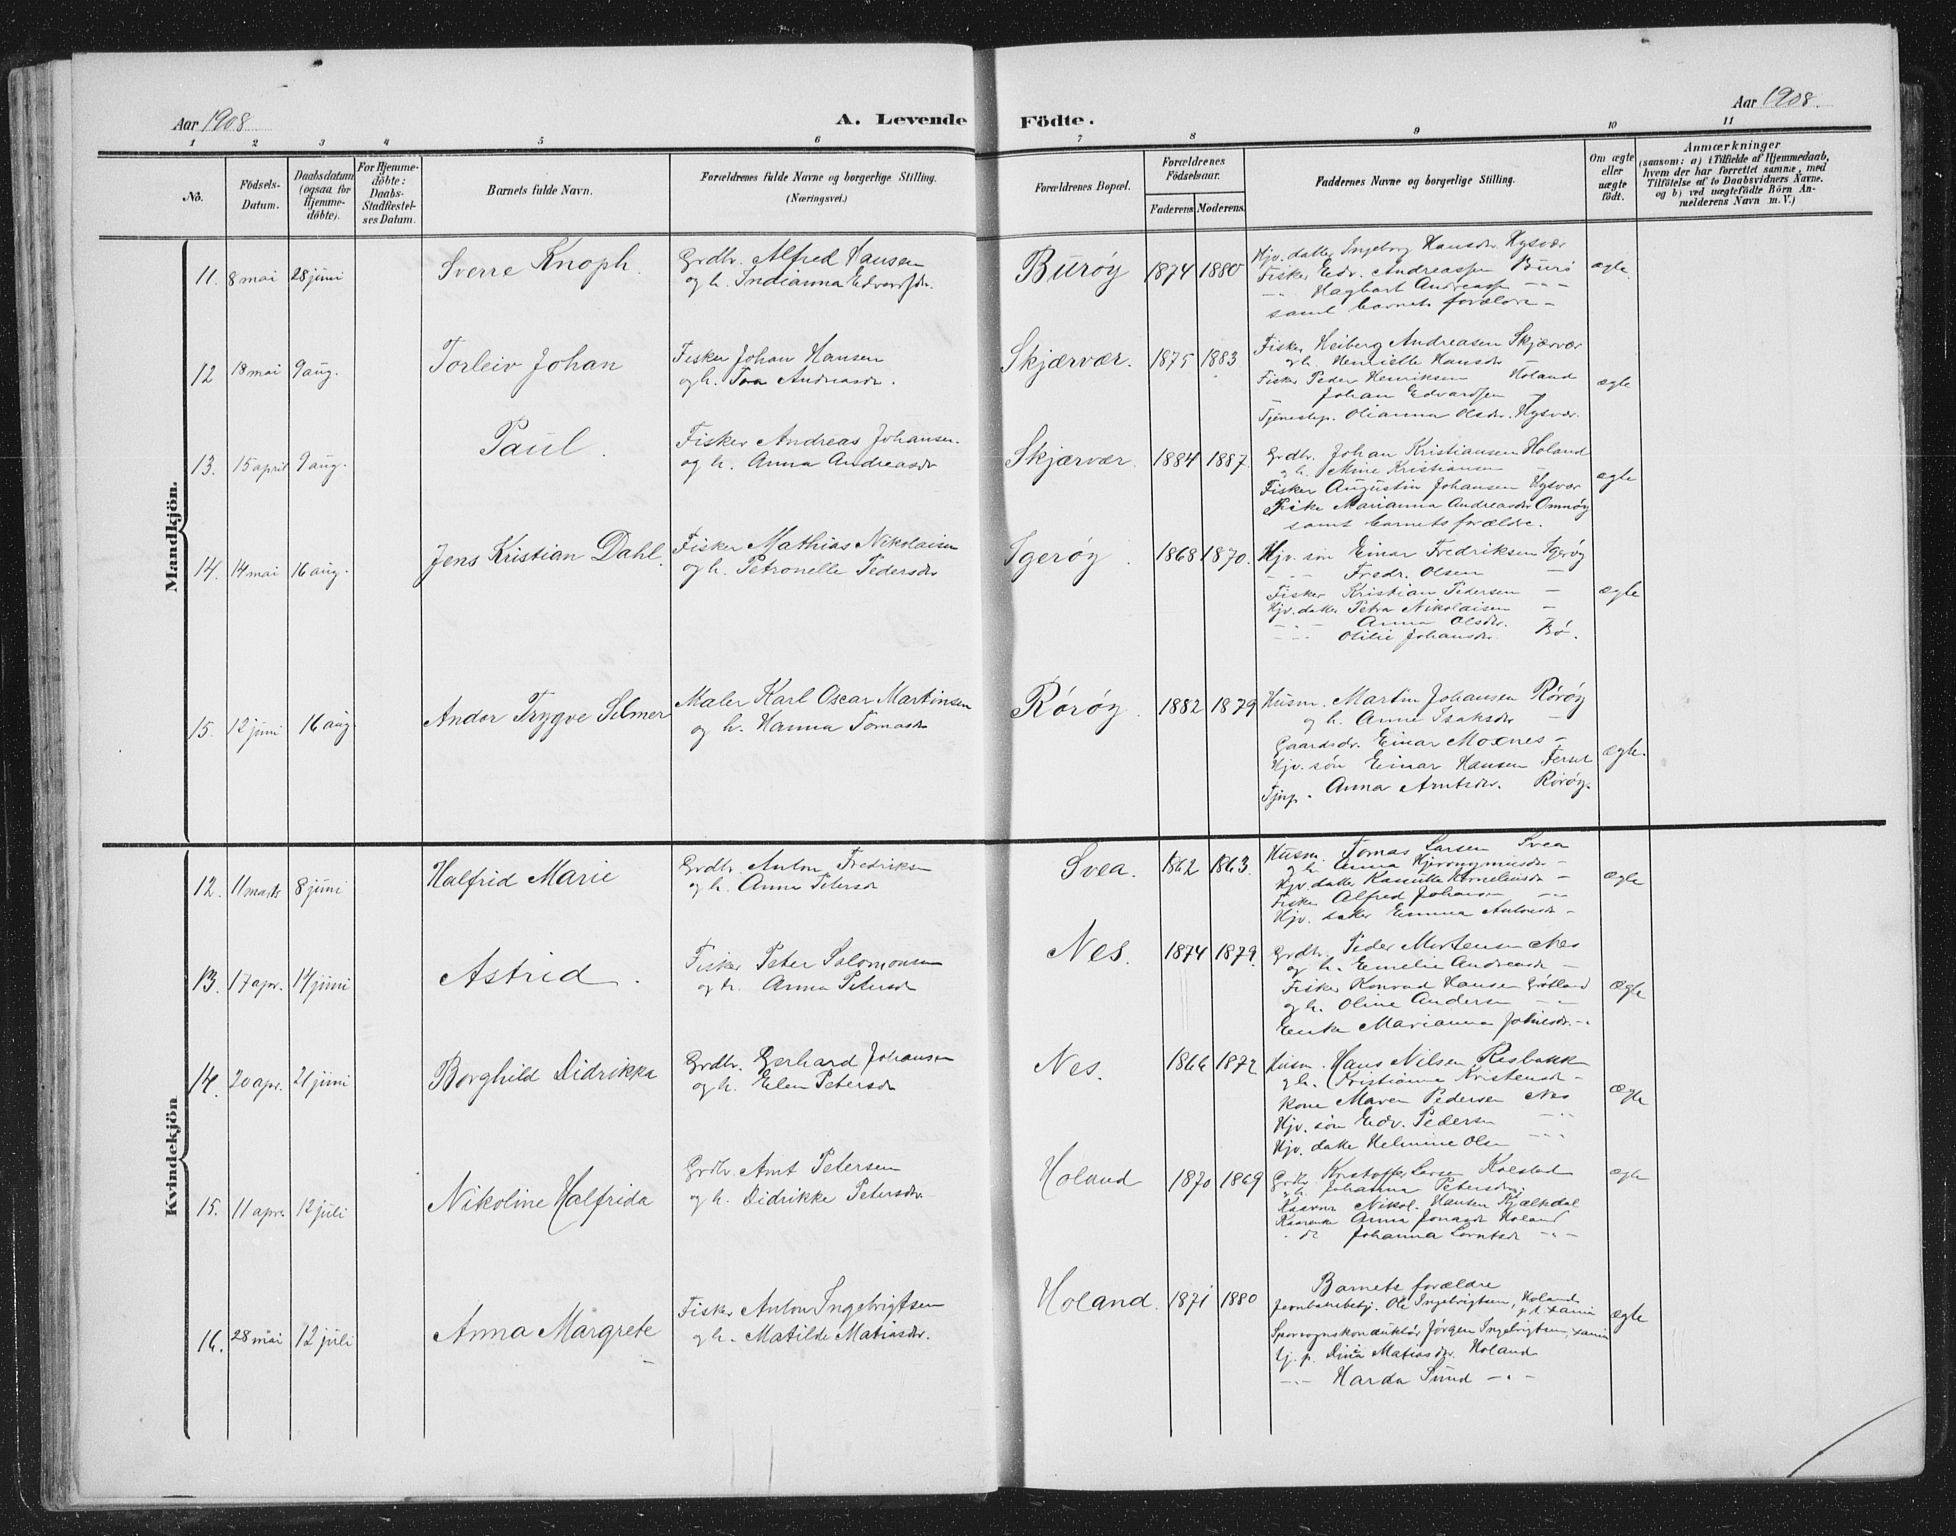 Aar 1908
A. Levende Födte.
Aar 1908.
1 2 3 4 5 6 7 8 9 10 11
No.
Födsels-Datum.
Daabsdatum (ogsaa for Hjemmedöbte).
For Hjemmedöbte: Daabs-Stadfæstelses Datum.
Barnets fulde Navn.
Forældrenes fulde Navne og borgerlige Stilling.
(Næringsvei.)
Forældrenes Bopæl.
Forældrenes Födselsaar.
Faderens
Moderens.
Faddernes Navne og borgerlige Stilling.
Om ægte eller uægte födt.
Anmærkninger
(sansom: a) i Tilfælde af Hjemmedaab,
hvem der har forrettet samme, med
Tilföielse af to Daabsvidners Navne.
og b) ved uægtefödte Börn An-
melderens Navn m. V.)
Mandkjön.
11. 8 mai 28 juni Sverre Knoph. Grdbr. Alfred Hansen
og h. Indianna Edvardsdr.
Burøy 1874 1880 Hjv. datter Ingeborg Hansdr. Hysvær
Fisker Edv. Andreassen Burø
-"- Hagbart Andreass -"-
samt barnets forældre -
ægte.
12 18 mai 9 aug. Torleiv Johan Fisker Johan Hansen
og h. Andreasdr.
Skjærvær. 1875 1883 Fisker Heiberg Andreasen Skjærvær
og h. Henriette Hansdr -
Fisker Peder Henriksen Holand
Johan Edvardsen -
Tjenestep. Olianna Olsdr. Hysvær.
ægte
13. 15 april 9 aug. Paul. Fisker Andreas Johansen.
og h. Anna Andreasdr
Skjærvær. 1884 1887. Grdbr. Johan Kristiansen Holand
og h. Mine Kristiansen -
Fisker Augustin Johansen Hysvær
Pike Marianna Andreasdr Omnøy
samt barnets forældre.
ægte
14. 14 mai 16 aug. Jens Kristian Dahl. Fisker Mathias Nikolaisen
og h. Petronelle Pedersdr
Igerøy. 1868 1870. Hjv. søn Einar Fredriksen Igerøy
-"- Fredr. Olsen -
Fisker Kristian Pedersen -
Hjv. datter Petra Nikolaisen -
-"- Anna Olsdr. -
-"- Otilie Johansdr. Bø.
ægte
15. 12 juni 16 aug Andor Trygve Selmer Maler Karl Oscar Martinsen
og h. Hanna Tomasdr
Rørøy. 1882 1879 Husm. Martin Johansen Rørøy
og h. Anne Isaksdr -
Gaardsdr. Einar Moxnes -
Hjv. søn Einar Hansen Ferset
Tjnp. Anna Arntsdr. Rørøy.
ægte.
Kvindekjön
12. 11 marts 8 juni Halfrid Marie Grdbr. Anton Fredriksen
og h. Anna Petersdr
Svea. 1862 1863. Husm. Tomas Larsen Svea
og h. Emma Hjeronymusdr -
Hjv. datter Korneliusdr -
Fisker Alfred Johansen -"-
Hjv. datter Emma Antonsdr -
ægte
13. 17 apr. 14 juni Astrid. Fisker Peter Salomonsen
og h. Anna Petersdr
Nes. 1874 1879. Grdbr. Peder Mortensen Nes
og h. Emelie Andreasdr -
Fisker Konrad Hansen Grøtland
og h. Oline Andersen -"-
Enke Marianna -
ægte
14. 20 apr. 21 juni Borghild Didrikka Grdbr. Gerhard Johansen
og h. Elen Petersdr
Nes. 1866 1872 Husm. Hans Nilsen Risbakk
og h. Kristianna Kristensdr -
Kone Maren Pedersen Nes
Hjv. søn Edv. Pedersen -"-
Hjv. datter Helmine Olsen -"-
ægte
15. 11 apr. 12 juli Nikoline Halfrida Grdbr. Arnt Petersen
og h. Didrikke Petersdr.
Holand 1870 1869 Grdbr Kristoffer Larsen Kolstad
og h. Johanna Petersdr.
Kaarm Nikol. Hansen Kjælkdal
Kaarenke Anna Jonasdr Holand
" dr Johanna Lorntsdr -"-
ægte
16. 28 mai 12 juli Anna Margrete Fisker Anton Ingebrigtsen
og h. Matilde Matiasdr.
Holand. 1871 1880 Barnets forældre
Jernbanebetj. Ole Ingebrigtsen, Holand,
Sporvognskonduktør Jørgen Ingebrigtsen
tj. p. Dina Matiasdr. Holand
-"- Harda Sund -"-
ægte